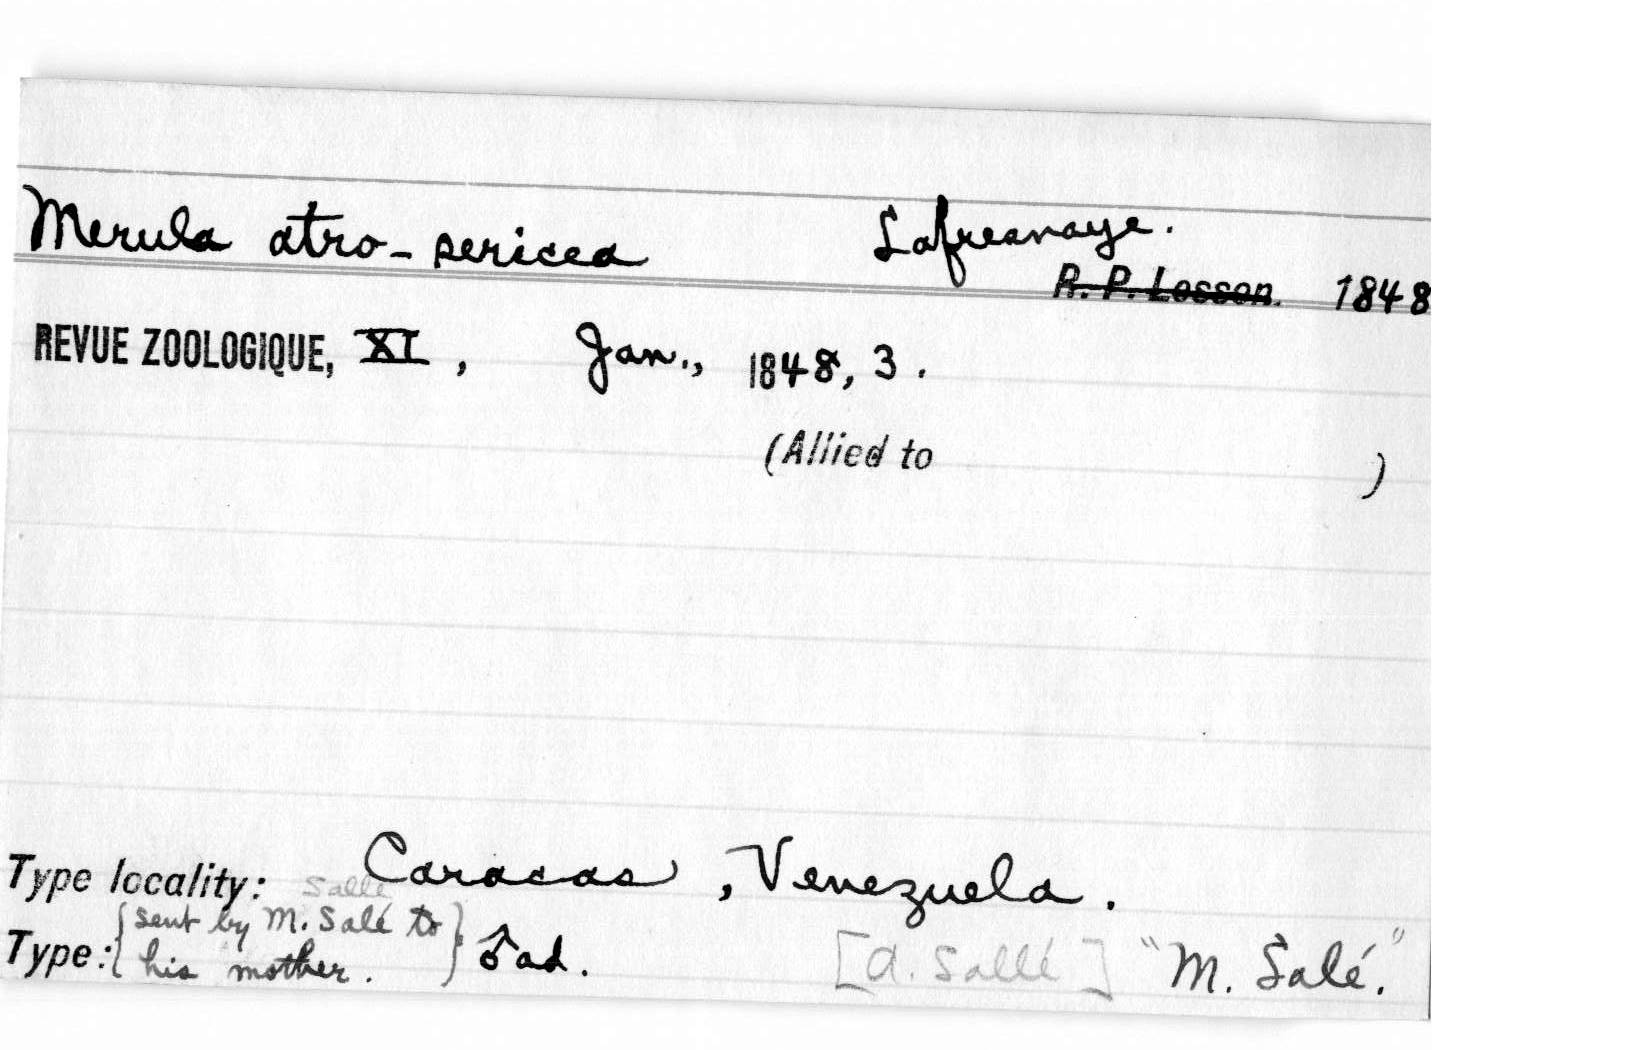 Merula atro-sericea Lafresnaye.
R. P. Lesson. 1848
REVUE ZOOLOGIQUE, XI, Jan., 1848, 3.
(Allied to )
Type locality: Caracas, Venezuela.
Sallé
Type: {sent by M. Salé to
his mother.} ♂ ad. [A. Sallé] "M. Salé."